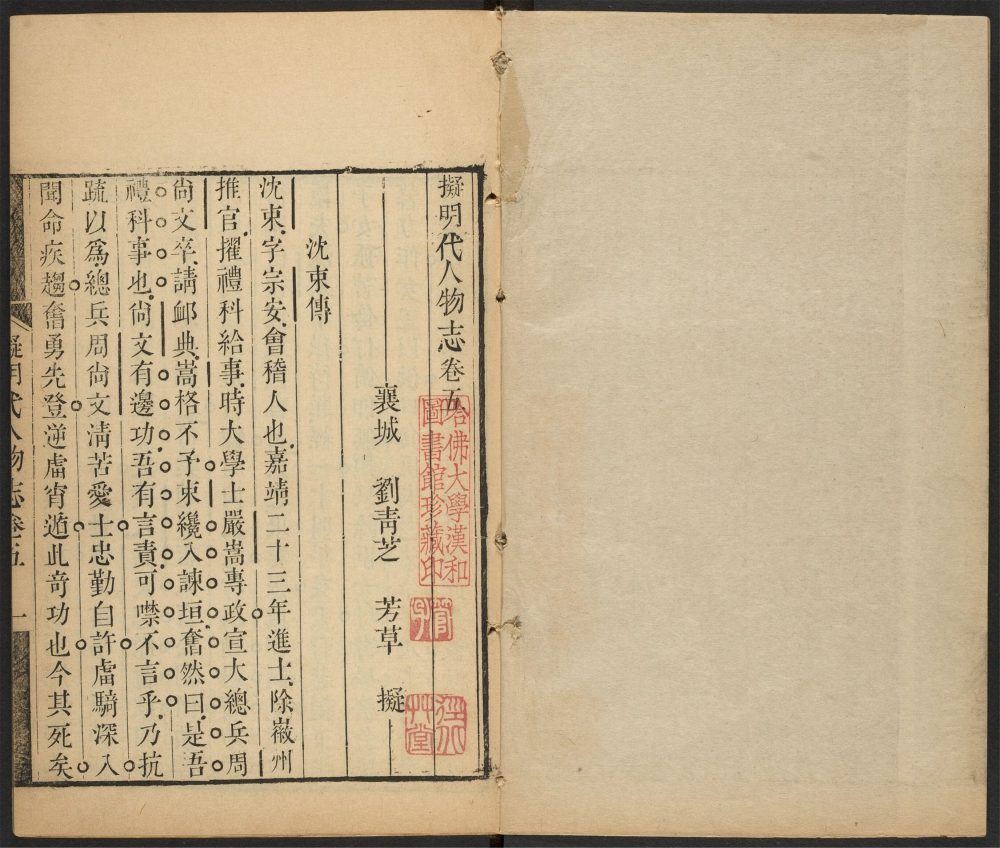 擬明代人物志卷五
襄城 劉靑芝 芳草 擬
沈束傳
沈束字宗安會稽人也嘉靖二十三年進士除徽州
推官擢禮科給事時大學士嚴嵩專政宣大總兵周
尙文卒請䘏典嵩格不予束纔入諫垣奮然曰是吾
禮科事也尙文有邊功吾有言責可噤不言乎乃抗
疏以爲總兵周尙文淸苦愛士忠勤自許虜騎深入
聞命疾趨奮勇先登逆虜宵遁此奇功也今其死矣
擬明代人物志卷五 一
哈佛大學漢和
圖書館珍藏印
草堂